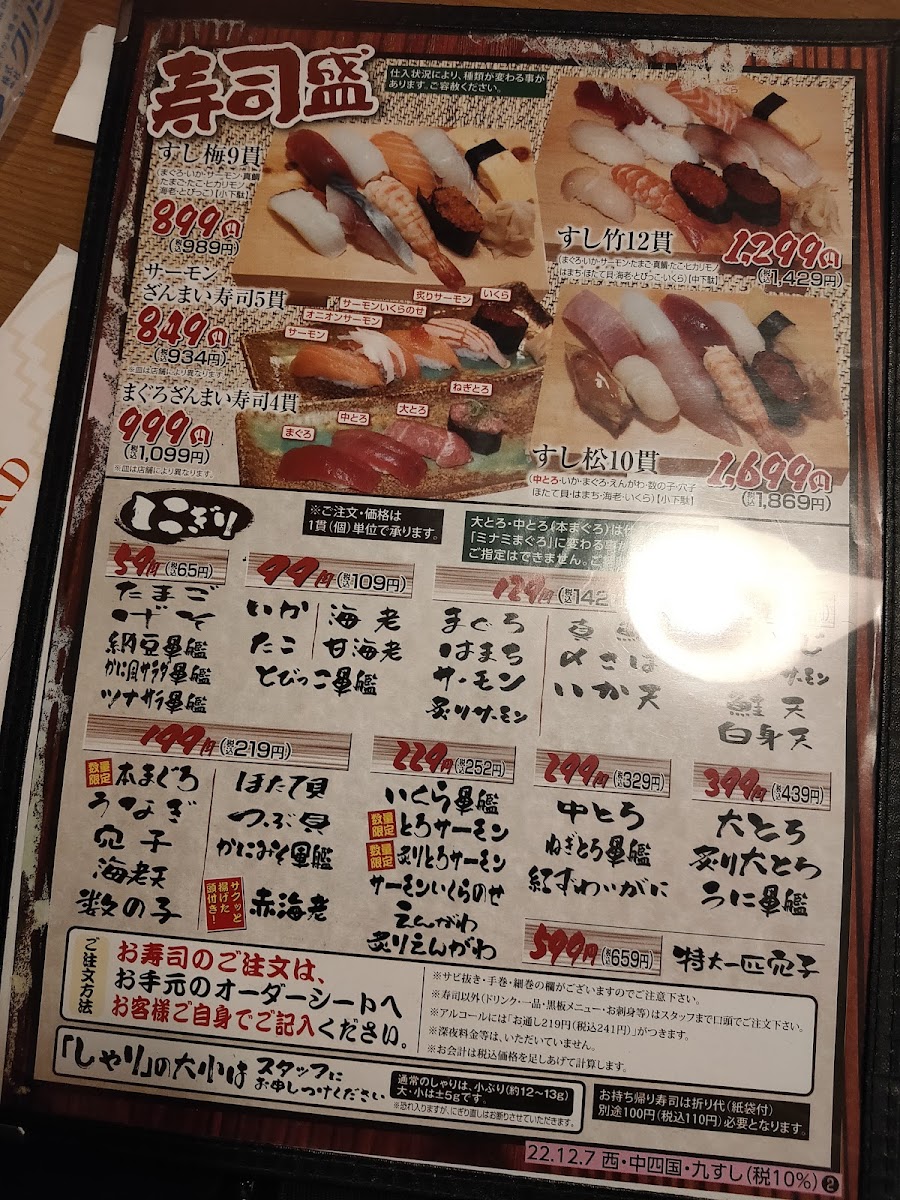 寿司盛
仕入状況により、種類が変わる事が
あります。ご容赦ください。
すし梅9貫
(まぐろ・いか・サーモン・真鯛
たまご・たこ・ヒカリモノ
海老・とびっこ)【小下駄】
899円
(税込989円)
すし竹12貫
(まぐろ・いか・サーモン・たまご・真鯛・たこ・ヒカリモノ
はまち・ほたて貝・海老・とびっこ・いくら)【中下駄】
1,299円
(税込1,429円)
サーモン
ざんまい寿司5貫
849円
(税込934円)
※皿は店舗により異なります。
サーモン
オニオンサーモン
サーモンいくらのせ
炙りサーモン
いくら
まぐろざんまい寿司4貫
999円
(税込1,099円)
※皿は店舗により異なります。
まぐろ
中とろ
大とろ
ねぎとろ
すし松10貫
(中とろ・いか・まぐろ・えんがわ・数の子・穴子
ほたて貝・はまち・海老・いくら)【小下駄】
1,699円
(税込1,869円)
にぎり
※ご注文・価格は
1貫(個)単位で承ります。
大とろ・中とろ(本まぐろ)は
「ミナミまぐろ」に変わる事
ご指定はできません。
59円(税込65円)
たまご
げそ
納豆軍艦
かに風サラダ軍艦
ツナサラダ軍艦
99円(税込109円)
いか
たこ
とびっこ軍艦
海老
甘海老
129円(税込142
まぐろ
はまち
サーモン
炙りサーモン
真
〆さば
いか天
サーモン
鮭天
白身天
199円(税込219円)
数量限定 本まぐろ
うなぎ
穴子
海老天
数の子
ほたて貝
つぶ貝
かにみそ軍艦
サクッと揚げた頭付き! 赤海老
229円(税込252円)
いくら軍艦
数量限定 とろサーモン
数量限定 炙りとろサーモン
サーモンいくらのせ
えんがわ
炙りえんがわ
299円(税込329円)
中とろ
ねぎとろ軍艦
紅ずわいがに
399円(税込439円)
大とろ
炙り大とろ
うに軍艦
599円(税込659円)
特大一匹穴子
ご注文方法
お寿司のご注文は、
お手元のオーダーシートへ
お客様ご自身でご記入ください。
※サビ抜き・手巻・細巻の欄がございますのでご注意下さい。
※寿司以外(ドリンク・一品・黒板メニュー・お刺身等)はスタッフまで口頭でご注文下さい。
※アルコールには「お通し219円(税込241円)」がつきます。
※深夜料金等は、いただいていません。
※お会計は税込価格を足しあげて計算します。
「しゃり」の大小は スタッフに
お申しつけください
通常のしゃりは、小ぶり(約12～13g)
大・小は±5gです。
※恐れ入りますが、にぎり直しはお断りさせていただきます。
お持ち帰り寿司は折り代(紙袋付)
別途100円(税込110円)必要となります。
22.12.7 西・中四国・九すし(税10%) ❷